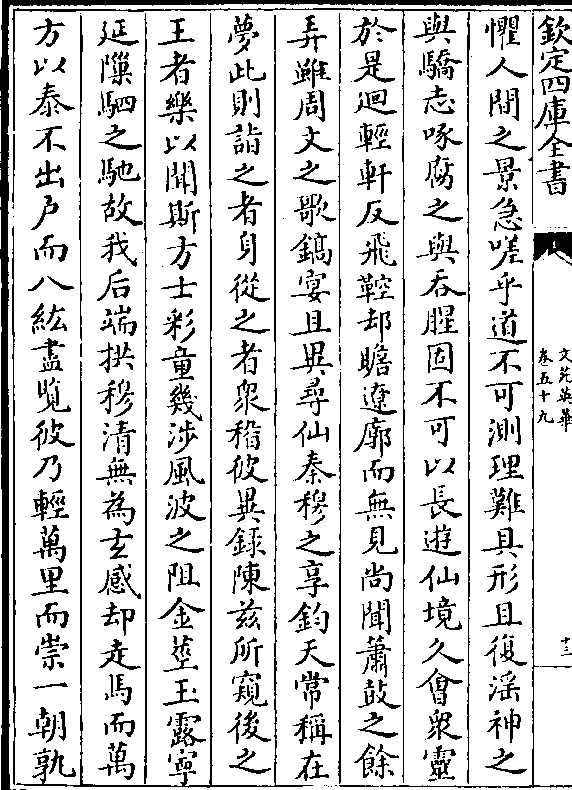 欽定四庫全書
文苑英華
卷五十九
十三
懼人間之景急嗟乎道不可測理難具形且復滛神之
與驕志啄腐之與吞腥固不可以長遊仙境久㑹眾靈
於是迴輕軒反飛鞚却瞻遼廓而無見尚聞簫鼓之餘
弄雖周文之歌鎬宴且異尋仙秦穆之享鈞天常稱在
夢此則詣之者身從之者眾稽彼異録陳兹所窺後之
王者樂以聞斯方士彩童幾涉風波之阻金莖玉露寧
延隟駟之馳故我后端拱穆清無為𤣥感却走馬而萬
方以泰不出戶而八紘盡覧彼乃輕萬里而崇一朝孰